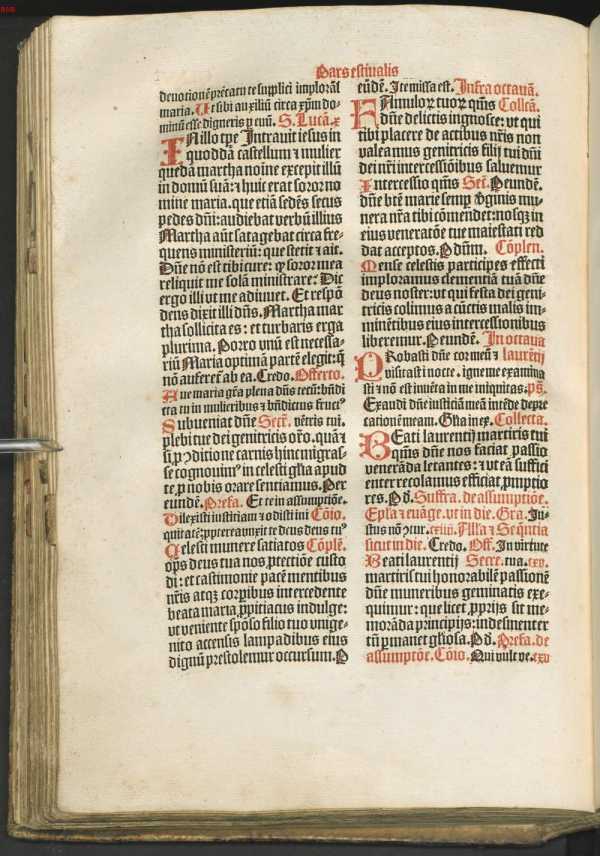 Pars estiualis
deuotionē precātū te suppl'ici implorāt
maria. Ut sibi auxiliū circa xp̄m do-
minū esse digneris ꝑ euū. S. Lucā. x
IN illo tꝑe Intrauit iesus in
quoddā castellum ⁊ mulier
quedā martha noīne excepit illū
in domū suā: ⁊ huic erat soror no
mine maria. que etiā sedēs secus
pedes dñi: audiebat verbū illius
Martha aūt satagebat circa fre-
quens ministeriū: que stetit ⁊ ait.
Dñe nō est tibi cure: ꝙ soror mea
reliquit me solā ministrare: Dic
ergo illi vt me adiuuet. Et respō
dens dixit illi dñs. Martha mar
tha sollicita es: et turbaris erga
plurima. Porro vnū est necessa-
riū Maria optimā partē elegit: q̄
nō auferet̄ ab ea. Credo. Offerto.
Aue maria gr̄a plena dñs tecū: bñdi
cta tu in mulieribus ⁊ bñdictus fruct⁹
Subueniat dñe Secr̄. vētris tui.
plebi tue dei genitricis or̄o. quā ⁊
si ꝓ ꝯditione carnis hinc migras-
se cognouim⁹ in celesti gl̄ia apud
te, ꝓ nobis orare sentiamus. Per
eundē. Prefa. Et te in assumptiōe.
Dilexisti iustitiam ⁊ odisti ini Cōio.
quitatē: ꝓpterea vnxit te deus deus tu⁹
Celesti munere satiatos Cōplē.
oꝑs deus tua nos ꝓtectiōe custo
di: et castimonie pacē mentibus
nr̄is atqꝫ corꝑibus intercedente
beata maria, ꝓpitiatus indulge:
vt veniente sp̄oso filio tuo vnige-
nito accensis lampadibus eius
dignū prestolemur occursum. P
eūdē. Ite missa est. Infra octauā.
FAmulorꝝ tuorꝝ q̄ms Collcā.
dñe delictis ignosce: vt qui
tibi placere de actibus nr̄is non
valeamus genitricis filij tui dñi
dei nr̄i intercessiōibus saluemur
Intercessio q̄ms Secr̄. P eundē.
dñe btē marie semꝑ ꝟginis mu-
nera nr̄a tibi cōmēdet: nosqꝫ in
eius veneratōe tue maiestati red
dat acceptos. P dñm. Cōplen.
Mense celestis participes effecti
imploramus clementiā tuā dñe
deus noster: vt qui festa dei geni-
tricis colimus a cūctis malis im-
minētibus eius intercessionibus
liberemur. P eundē. In octaua
PRobasti dñe cor meū ⁊ laurētij
visitasti nocte. igne me examina
sti ⁊ nō est inuēta in me iniquitas. p̄s.
Exaudi dñe iusticiā meā intēde depre
cationē meam. Gl̄ia in ex. Collecta.
BEati laurentij martiris tui
q̄ms dñe nos faciat passio
venerāda letantes: ⁊ vt eā suffici
enter recolamus efficiat, ꝓmptio
res. P d. Suffra. de assumptiōe.
Epl̄a ⁊ euāge. vt in die. Gra. Iu-
stus nō ꝯtur. cxiiij. All'a ⁊ Sequētia
sicut in die. Credo. Off. In virtute
Beati laurentij Secre. tua. cxv.
martiris tui honorabilē passionē
dñe muneribus geminatis exe-
quimur: que licet ꝓprijs sit me-
morāda principijs: indesinenter
tn̄ ꝑmanet gl̄iosa. P d. Prefa. de
assumptōe. Cōio. Qui vult ve. cxv